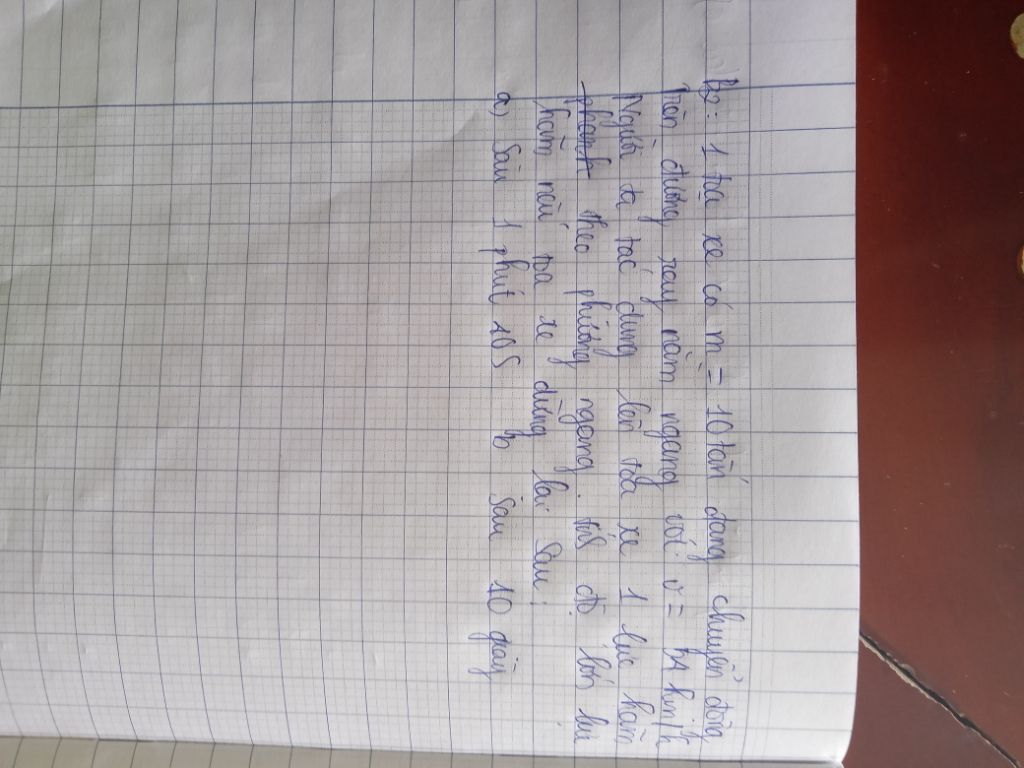 B2: 1 toa xe có m = 10 tấn đang chuyển động
trên đường ray nằm ngang với v = 54 km/h
Người ta tác dụng lên toa xe 1 lực hãm
theo phương ngang. tính độ lớn lực
hãm nếu toa xe dừng lại sau:
a) Sau 1 phút 40s b) Sau 10 giây